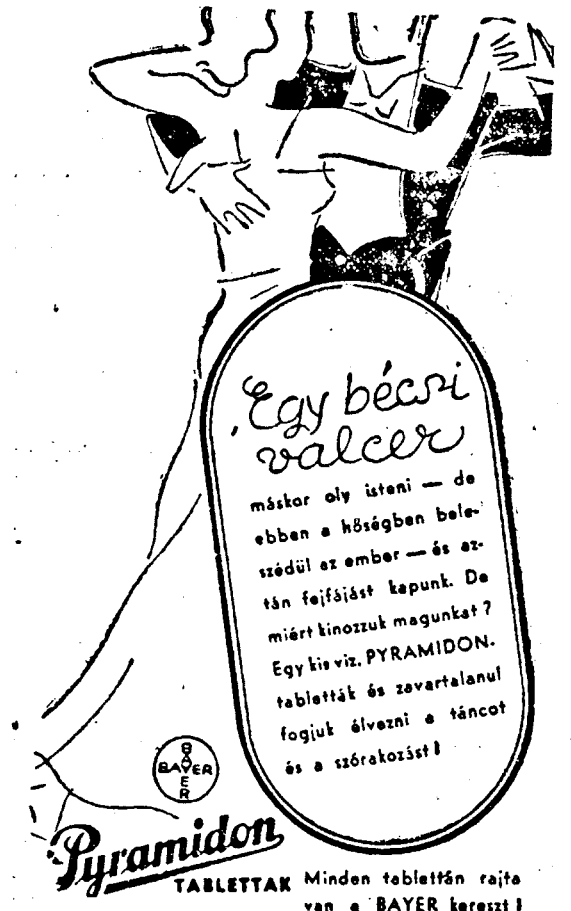 Egy bécsi
valcer
máskor oly isteni — de
ebben a hőségben bele-
szédül az ember — és az-
tán fejfájást kapunk. De
miért kinozzuk magunkat?
Egy kis viz, PYRAMIDON-
tabletták és zavartalanul
fogjuk élvezni a táncot
és a szórakozást!
BAYER
BAYER
Pyramidon
TABLETTAK
Minden tablettán rajta
van a BAYER kereszt!